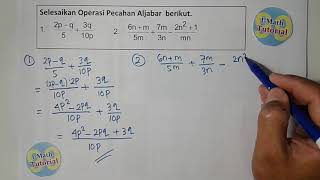 Selesaikan Operasi Pecahan Aljabar berikut.
1. (2p-q)/5 + 3q/10p
2. (6n+m)/5m + 7m/3n - (2n²+1)/mn
Math Tutorial
① (2p-q)/5 + 3q/10p
= ((2p-q)·2p)/10p + 3q/10p
= (4p²-2pq)/10p + 3q/10p
= (4p²-2pq+3q)/10p
② (6n+m)/5m + 7m/3n - 2n²
Math Tutorial